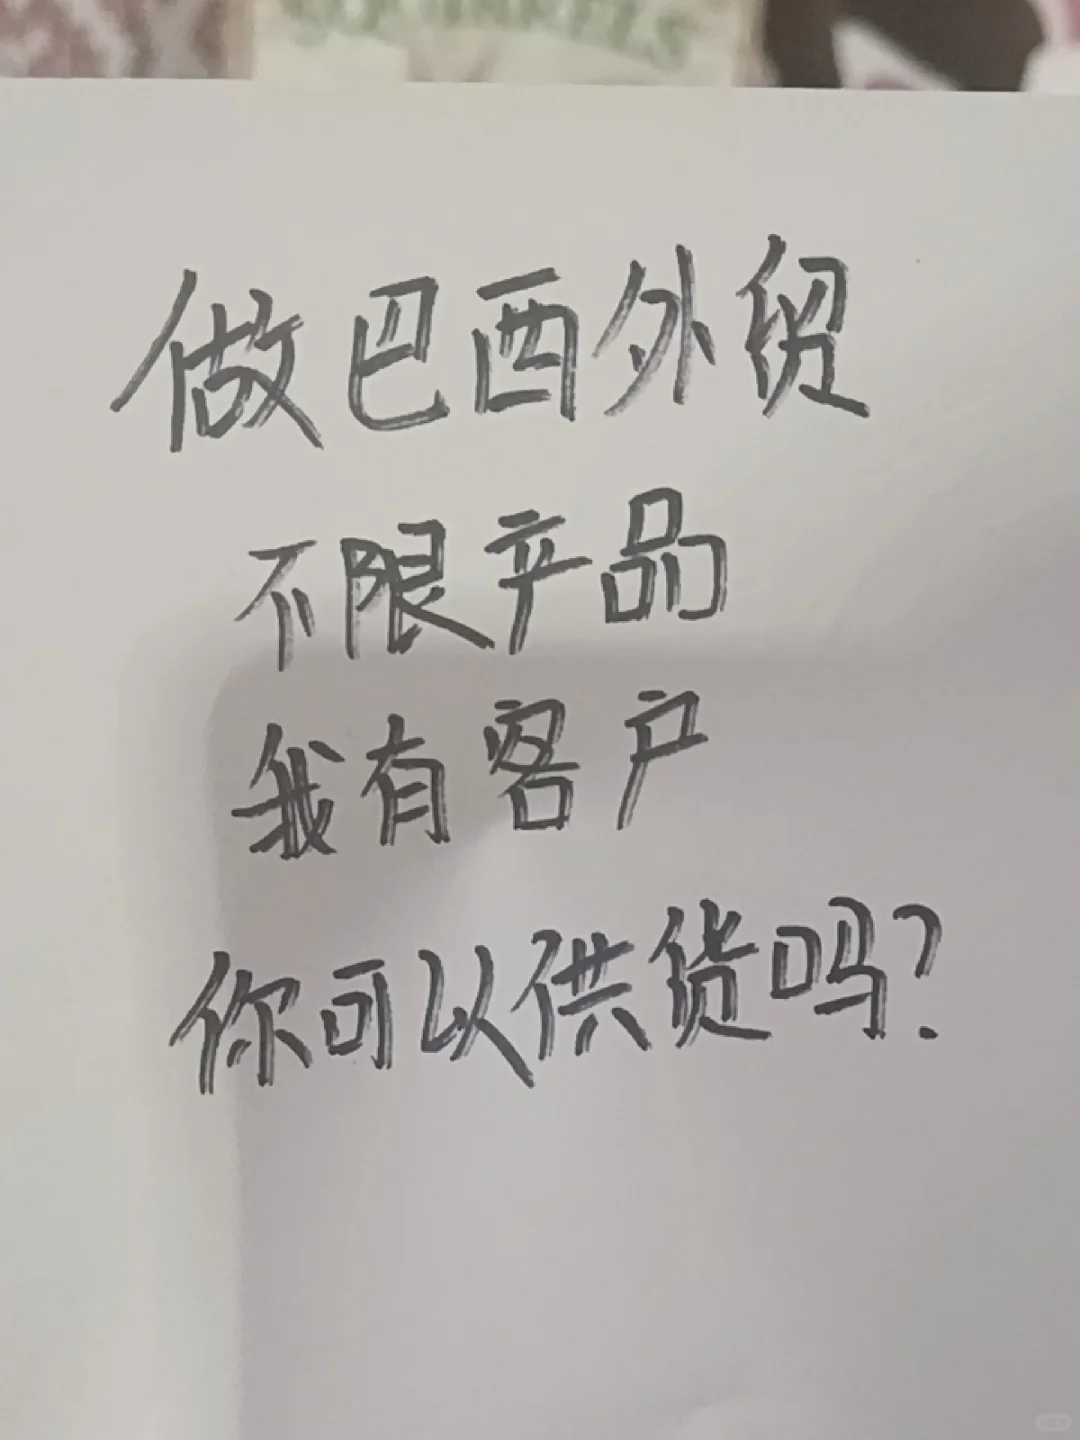 SQUIRRELS
做巴西外贸
不限产品
我有客户
你可以供货吗?